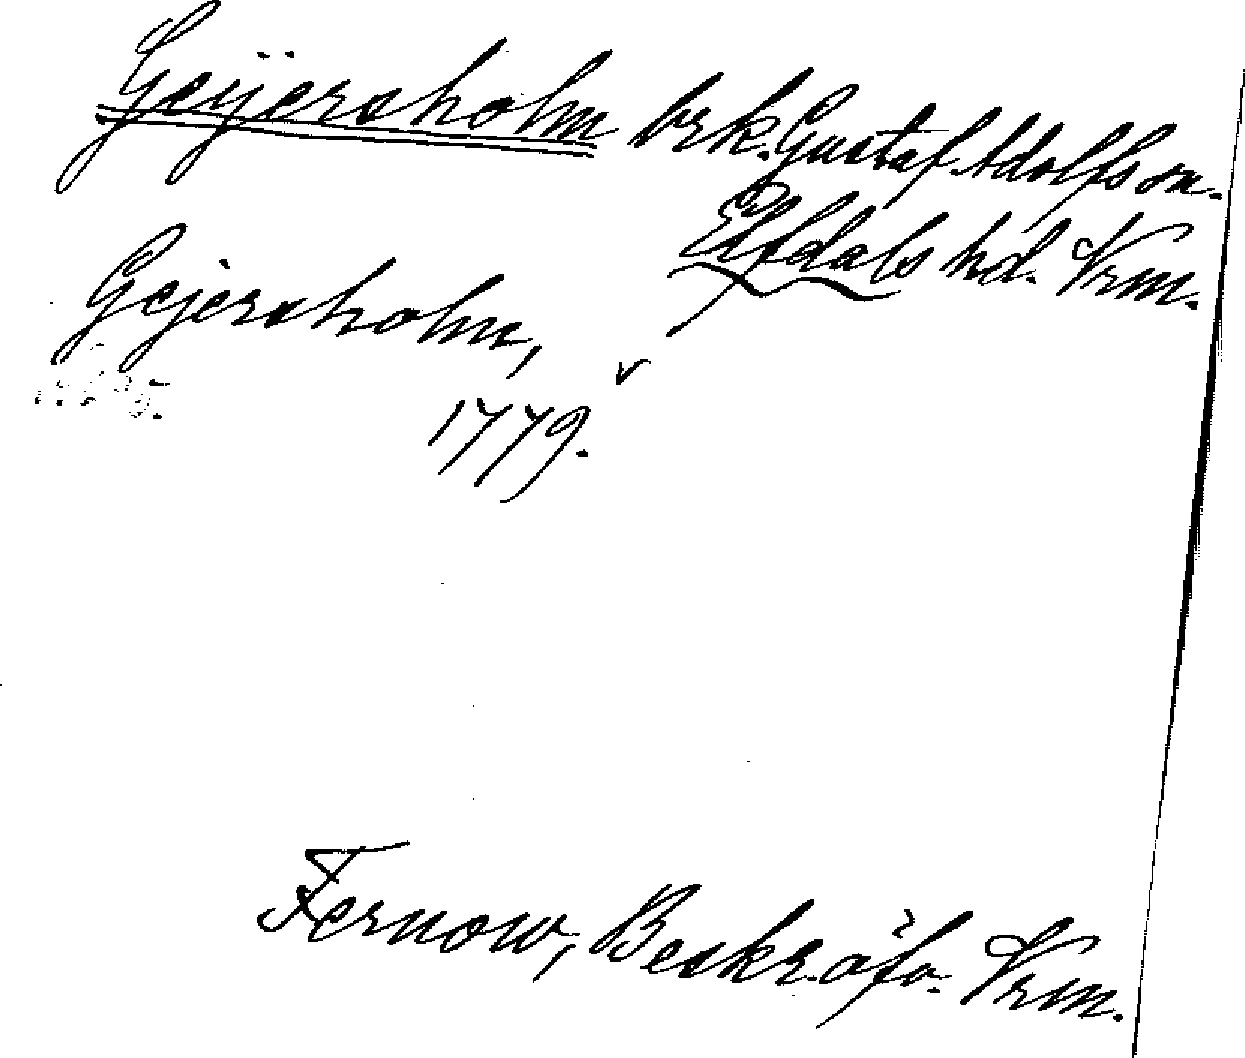 Geijersholm brk. Gustaf Adolfs sn.
Elfdals hd. Vrm.
Gejersholm,
1779.
Fernow, Beskr. öfv. Vrm.